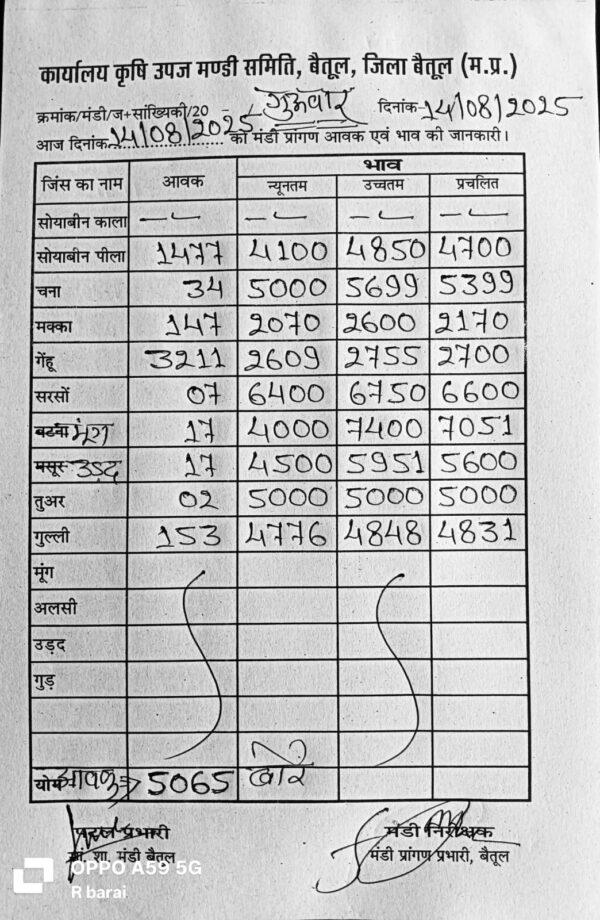 कार्यालय कृषि उपज मण्डी समिति, बैतूल, जिला बैतूल (म.प्र.)
क्रमांक/मंडी/ज+सांख्यिकी/20 गुरूवार दिनांक 14/08/2025
आज दिनांक 14/08/2025 को मंडी प्रांगण आवक एवं भाव की जानकारी।
जिंस का नाम आवक भाव
न्यूनतम उच्चतम प्रचलित
सोयाबीन काला - - - -
सोयाबीन पीला 1477 4100 4850 4700
चना 34 5000 5699 5399
मक्का 147 2070 2600 2170
गेंहू 3211 2609 2755 2700
सरसों 07 6400 6750 6600
बटना मूंग 17 4000 7400 7051
मसूर उड़द 17 4500 5951 5600
तुअर 02 5000 5000 5000
गुल्ली 153 4776 4848 4831
मूंग
अलसी
उड़द
गुड़
योग आवक 5065 बोरे
प्रभारी मंडी निरीक्षक
सां. शा. मंडी बैतूल मंडी प्रांगण प्रभारी, बैतूल
OPPO A59 5G
R barai